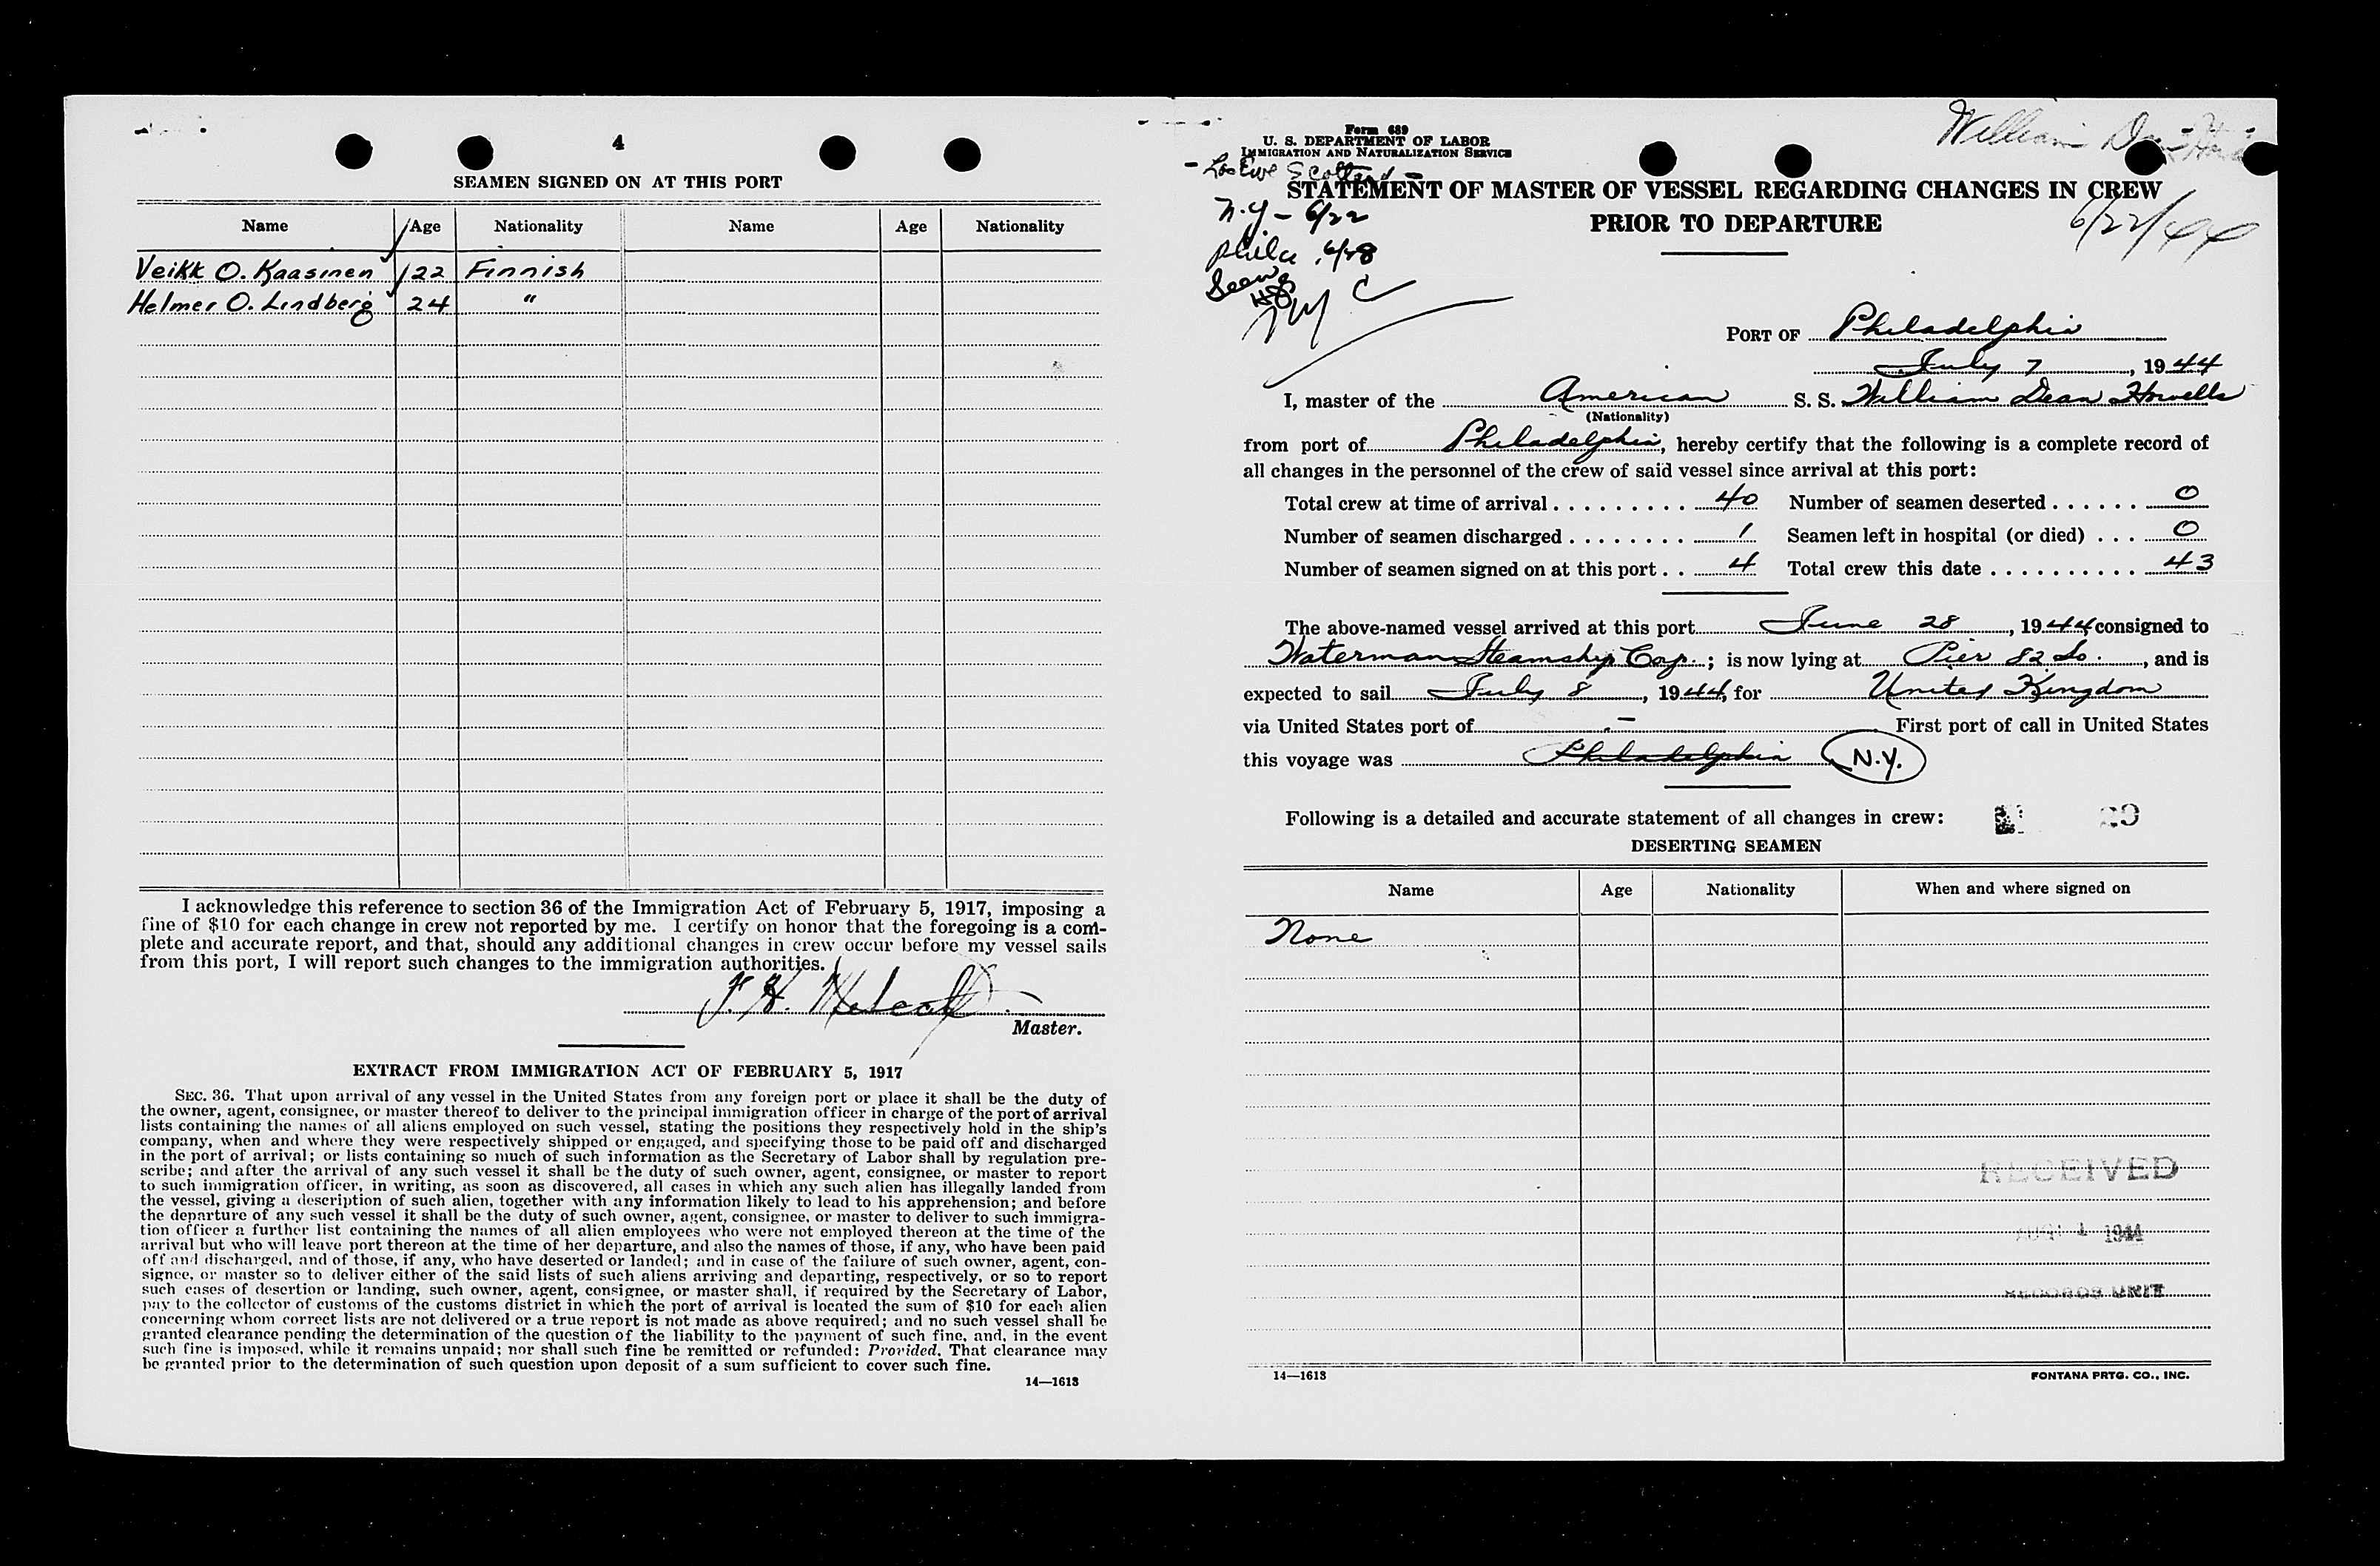 4
SEAMEN SIGNED ON AT THIS PORT
Name Age Nationality Name Age Nationality
Veikk O. Kaasinen 22 Finnish
Helmer O. Lindberg 24 "
I acknowledge this reference to section 36 of the Immigration Act of February 5, 1917, imposing a
fine of $10 for each change in crew not reported by me. I certify on honor that the foregoing is a com-
plete and accurate report, and that, should any additional changes in crew occur before my vessel sails
from this port, I will report such changes to the immigration authorities.
H. Metcalf
Master.
EXTRACT FROM IMMIGRATION ACT OF FEBRUARY 5, 1917
SEC. 36. That upon arrival of any vessel in the United States from any foreign port or place it shall be the duty of
the owner, agent, consignee, or master thereof to deliver to the principal immigration officer in charge of the port of arrival
lists containing the names of all aliens employed on such vessel, stating the positions they respectively hold in the ship's
company, when and where they were respectively shipped or engaged, and specifying those to be paid off and discharged
in the port of arrival; or lists containing so much of such information as the Secretary of Labor shall by regulation pre-
scribe; and after the arrival of any such vessel it shall be the duty of such owner, agent, consignee, or master to report
to such immigration officer, in writing, as soon as discovered, all cases in which any such alien has illegally landed from
the vessel, giving a description of such alien, together with any information likely to lead to his apprehension; and before
the departure of any such vessel it shall be the duty of such owner, agent, consignee, or master to deliver to such immigra-
tion officer a further list containing the names of all alien employees who were not employed thereon at the time of the
arrival but who will leave port thereon at the time of her departure, and also the names of those, if any, who have been paid
off and discharged, and of those, if any, who have deserted or landed; and in case of the failure of such owner, agent, con-
signee, or master so to deliver either of the said lists of such aliens arriving and departing, respectively, or so to report
such cases of desertion or landing, such owner, agent, consignee, or master shall, if required by the Secretary of Labor,
pay to the collector of customs of the customs district in which the port of arrival is located the sum of $10 for each alien
concerning whom correct lists are not delivered or a true report is not made as above required; and no such vessel shall be
granted clearance pending the determination of the question of the liability to the payment of such fine, and, in the event
such fine is imposed, while it remains unpaid; nor shall such fine be remitted or refunded: Provided, That clearance may
be granted prior to the determination of such question upon deposit of a sum sufficient to cover such fine.
14—1613
William Dean
Form 689
U. S. DEPARTMENT OF LABOR
IMMIGRATION AND NATURALIZATION SERVICE
Ewe Scotland
STATEMENT OF MASTER OF VESSEL REGARDING CHANGES IN CREW
PRIOR TO DEPARTURE
6/22/44
N.Y - 6/22
phila 6/28
PORT OF Philadelphia
July 7, 1944
I, master of the American S. S. William Dean Howells
(Nationality)
from port of Philadelphia, hereby certify that the following is a complete record of
all changes in the personnel of the crew of said vessel since arrival at this port:
Total crew at time of arrival 40 Number of seamen deserted 0
Number of seamen discharged 1 Seamen left in hospital (or died) 0
Number of seamen signed on at this port 4 Total crew this date 43
The above-named vessel arrived at this port June 28, 1944 consigned to
Waterman Steamship Corp.; is now lying at Pier 82 So., and is
expected to sail July 8, 1944, for United Kingdom
via United States port of - First port of call in United States
this voyage was Philadelphia N.Y.
Following is a detailed and accurate statement of all changes in crew:
DESERTING SEAMEN
Name Age Nationality When and where signed on
None
RECEIVED
AUG 1 1944
RECORDS UNIT
14—1613 FONTANA PRTG. CO., INC.